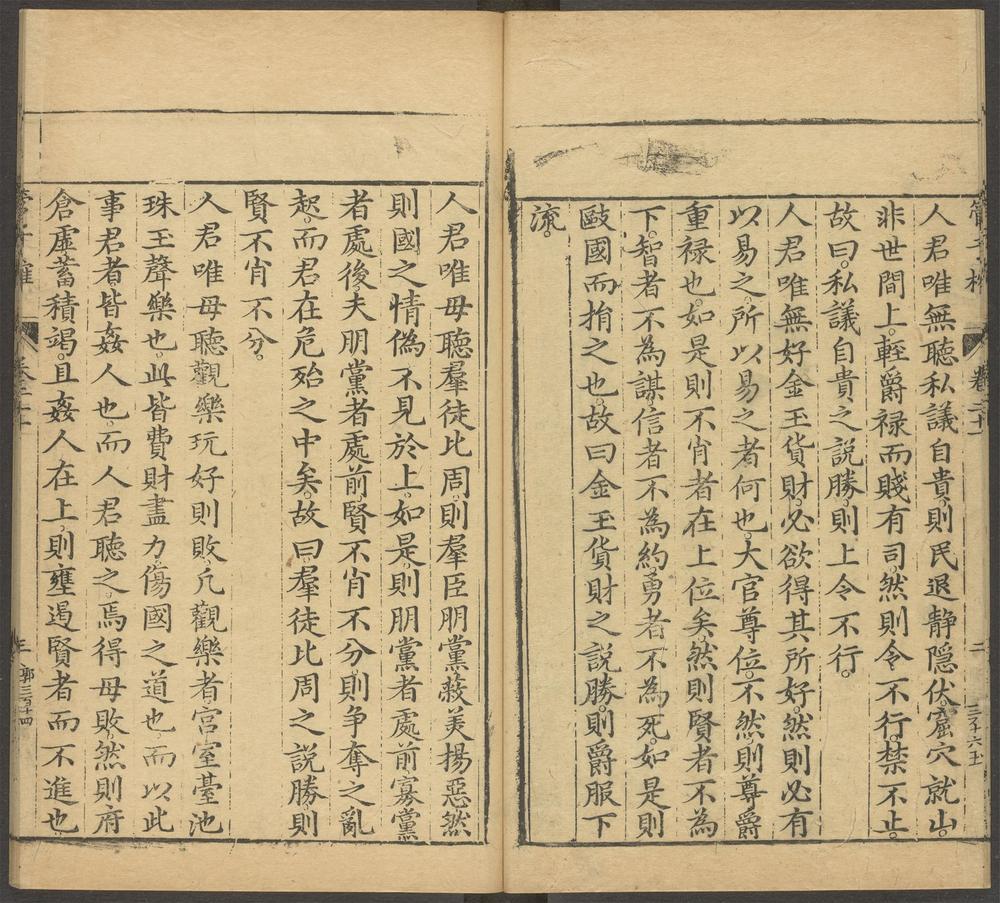 人君唯無聽私議自貴則民退静隱伏窟穴就山
非世間上輕爵禄而賤有司然則令不行禁不止
故曰私議自貴之説勝則上令不行
人君唯無好金玉貨財必欲得其所好然則必有
以易之所以易之者何也大官尊位不然則尊爵
重禄也如是則不肖者在上位矣然則賢者不為
下智者不為謀信者不為約勇者不為死如是則
敺國而捐之也故曰金玉貨財之説勝則爵服下
流
人君唯毋聽羣徒比周則羣臣朋黨蔽美揚惡然
則國之情偽不見於上如是則朋黨者處前寡黨
者處後夫朋黨者處前賢不肖不分則争奪之亂
起而君在危殆之中矣故曰羣徒比周之説勝則
賢不肖不分
人君唯毋聽觀樂玩好則敗凡觀樂者宫室臺池
珠玉聲樂也此皆費財盡力傷國之道也而以此
事君者皆姦人也而人君聽之焉得毋敗然則府
倉虚蓄積竭且姦人在上則壅遏賢者而不進也
三